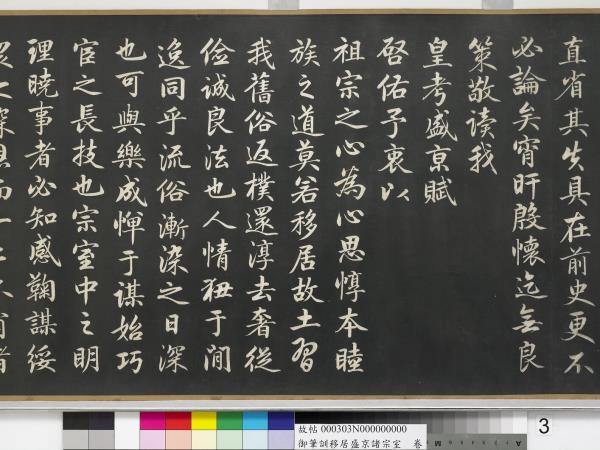 直省其失具在前史更不
必論矣宵旰殷懷迄無良
策敬读我
皇考盛京賦
啓佑予衷以
祖宗之心為心思惇本睦
族之道莫若移居故土習
我舊俗返樸還淳去奢從
儉诚良法也人情狃于閒
逸同乎流俗漸染之日深
也可與樂成惮于谋始巧
宦之長技也宗室中之明
理曉事者必知感鞠謀綏
3
故帖 000303N000000000
御筆訓移居盛京諸宗室 卷